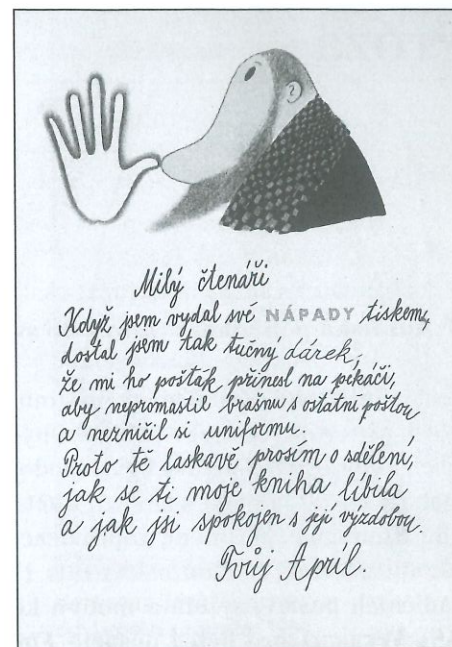 Milý čtenáři
Když jsem vydal své NÁPADY tiskem,
dostal jsem tak tučný dárek,
že mi ho pošťák přinesl na pekáči,
aby nepromastil brašnu s ostatní poštou
a nezničil si uniformu.
Proto tě laskavě prosím o sdělení,
jak se ti moje kniha líbila
a jak jsi spokojen s její výzdobou.
Tvůj Apríl.